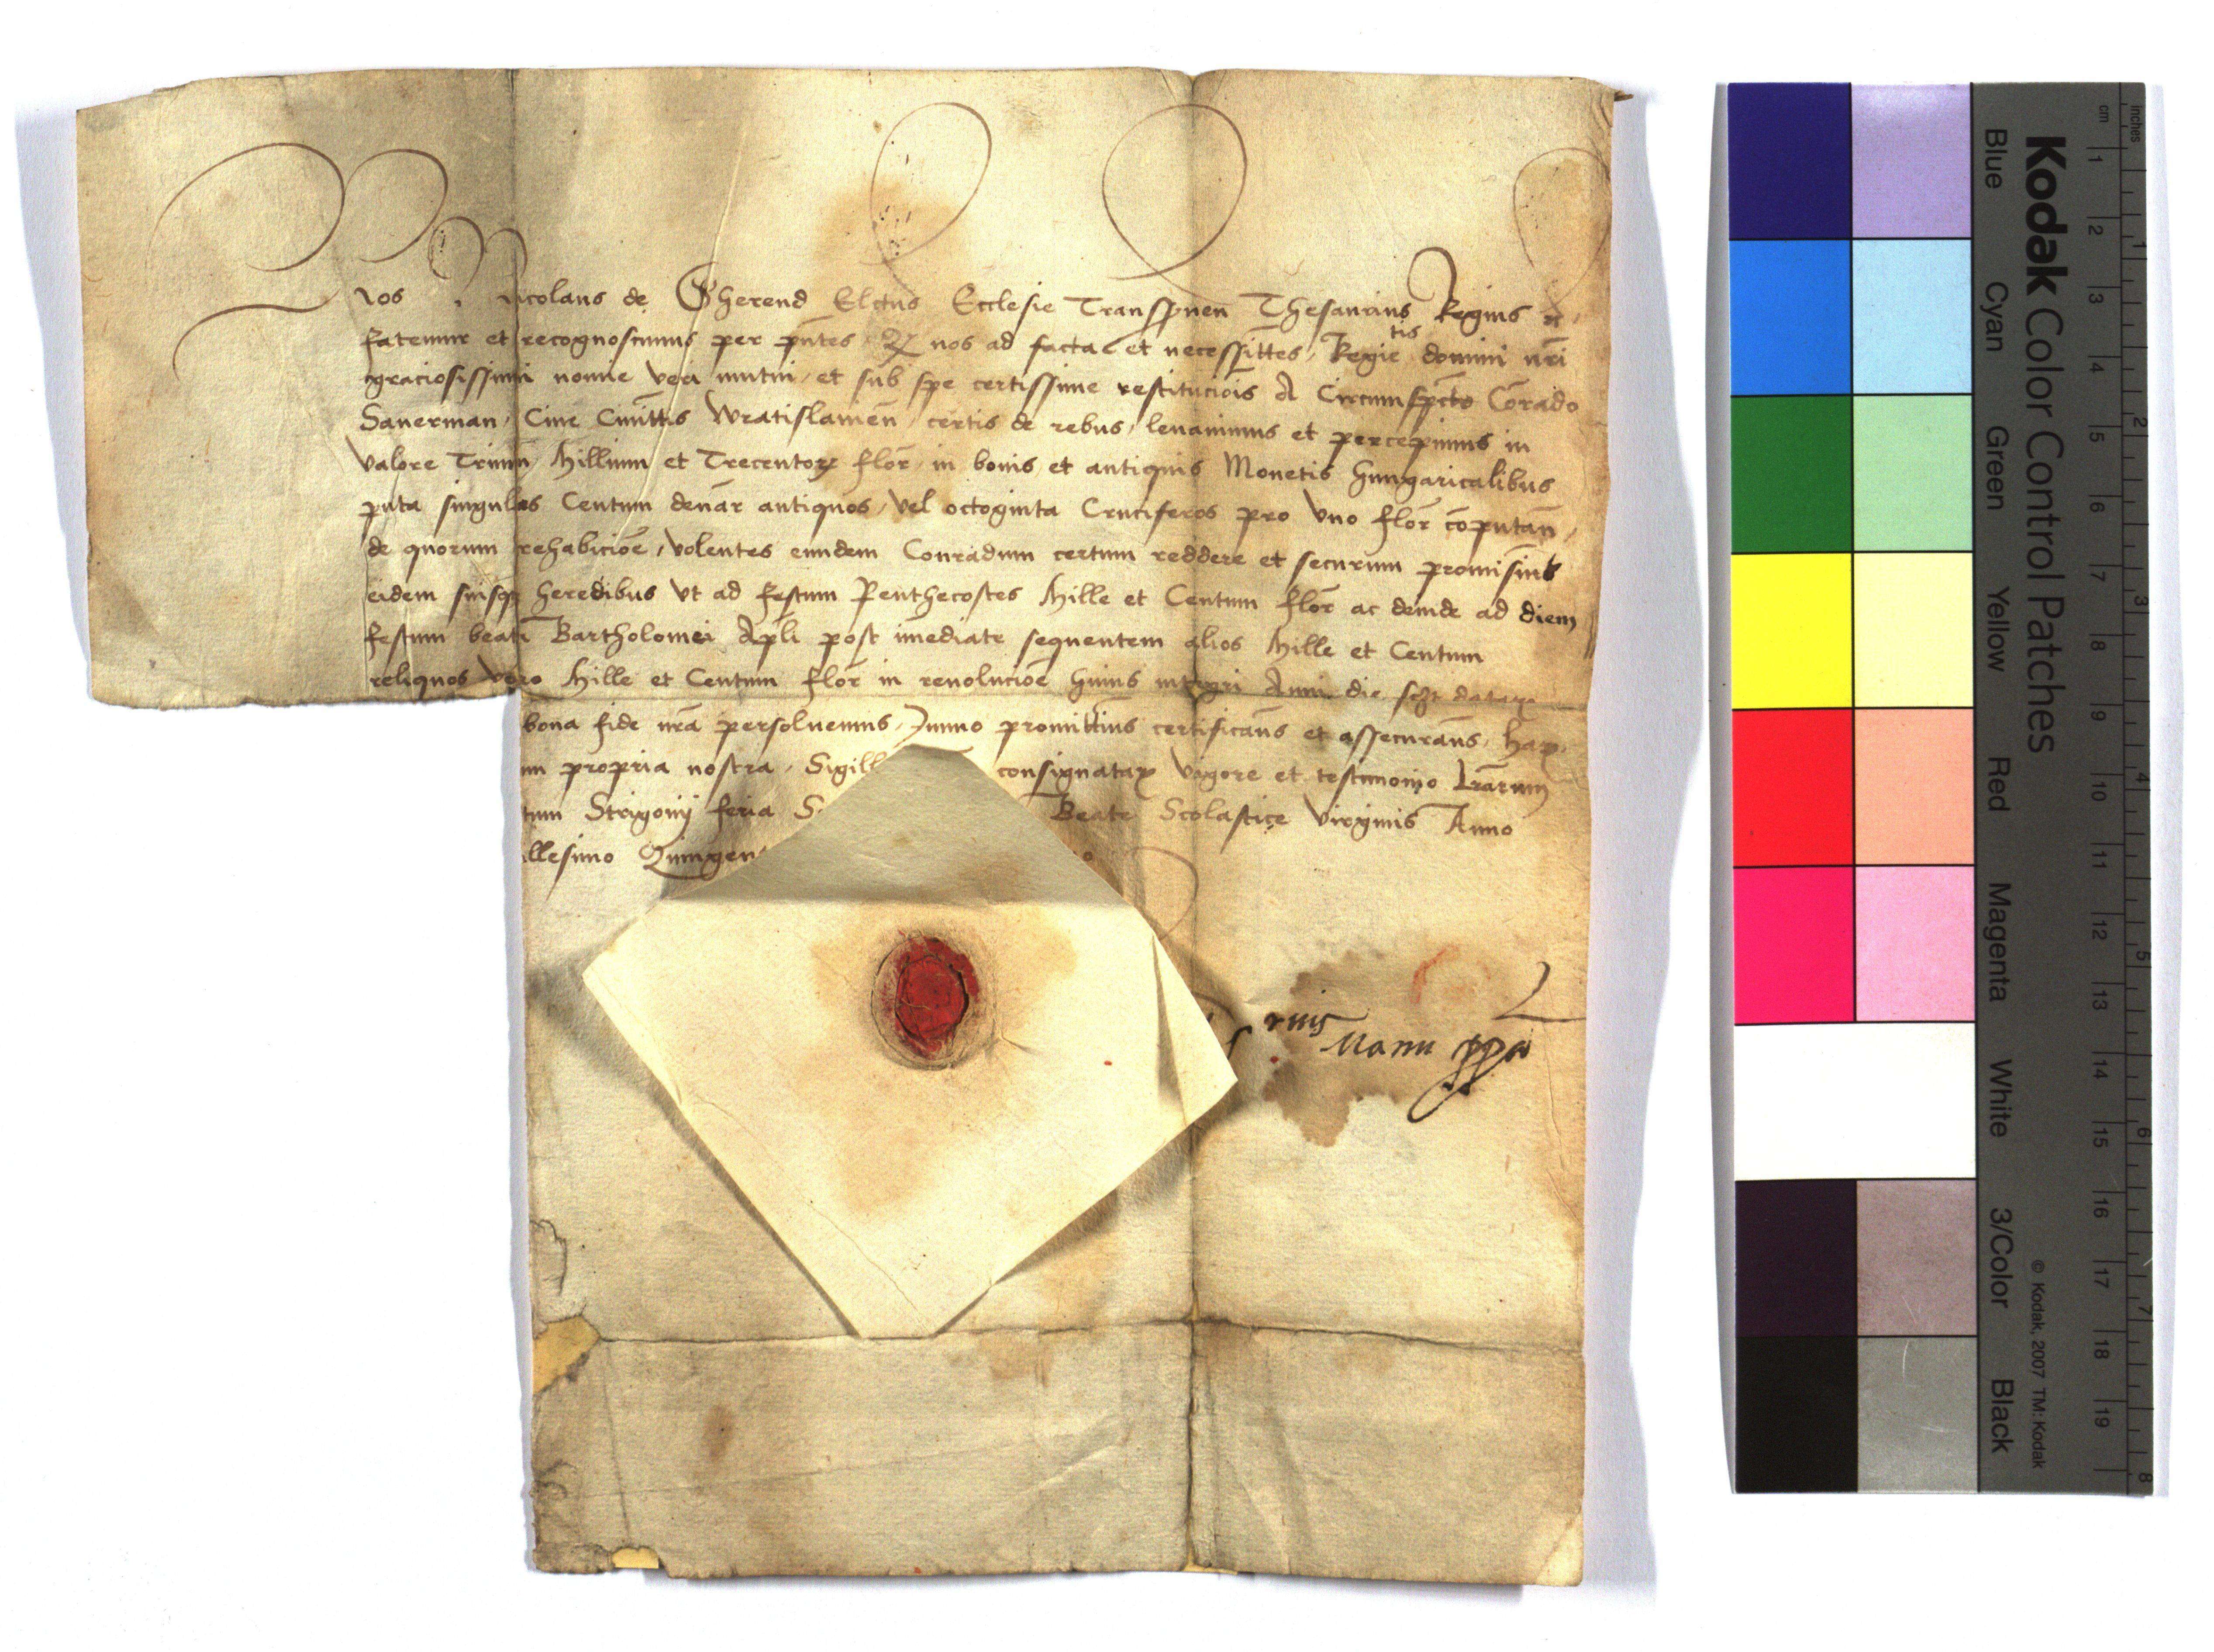 Nos Nicolaus de Gherend Elctus Ecclesie Transsyluen Thesaurius Regius
fatemur et recognoscimus per pntes, Qz nos ad facta et necessittes, Regie tis domini nri
graciosissimi nomine veri mutui, et sub spe certissime restitucois A Circumspcto Corado
Sauerman, Ciue Ciuittis Wratislauien, certis de rebus, leuauimus et percepimus in
valore Trium Millium et Trecentorz flor, in bonis et antiquis Monetis Hungaricalibus
puta singulos Centum denar antiquos, vel octoginta Cruciferos pro vno flor coputan,
de quorum rehabicioe, volentes eundem Conradum certum reddere et securum promisims
eidem suisqz heredibus vt ad festum Penthecostes Mille et Centum flor ac deinde ad diem
festum beati Bartholomei Apli post imediate sequentem alios Mille et Centum
reliquos vero Mille et Centum flor in reuolucioe huius integri Anni die datarz
bona fide nra persoluemus, Immo promittims certificans et assecurans, harz
propria nostra, Sigill consignatarz vigore et testimonio Lrarum
tum Strigonij feria S Beate Scolastice virginis Anno
illesimo Quingen o
Manu ppa
Kodak Color Control Patches
Blue Cyan Green Yellow Red Magenta White 3/Color Black
inches 1 2 3 4 5 6 7 8
cm 1 2 3 4 5 6 7 8 9 10 11 12 13 14 15 16 17 18 19
© Kodak, 2007 TM: Kodak